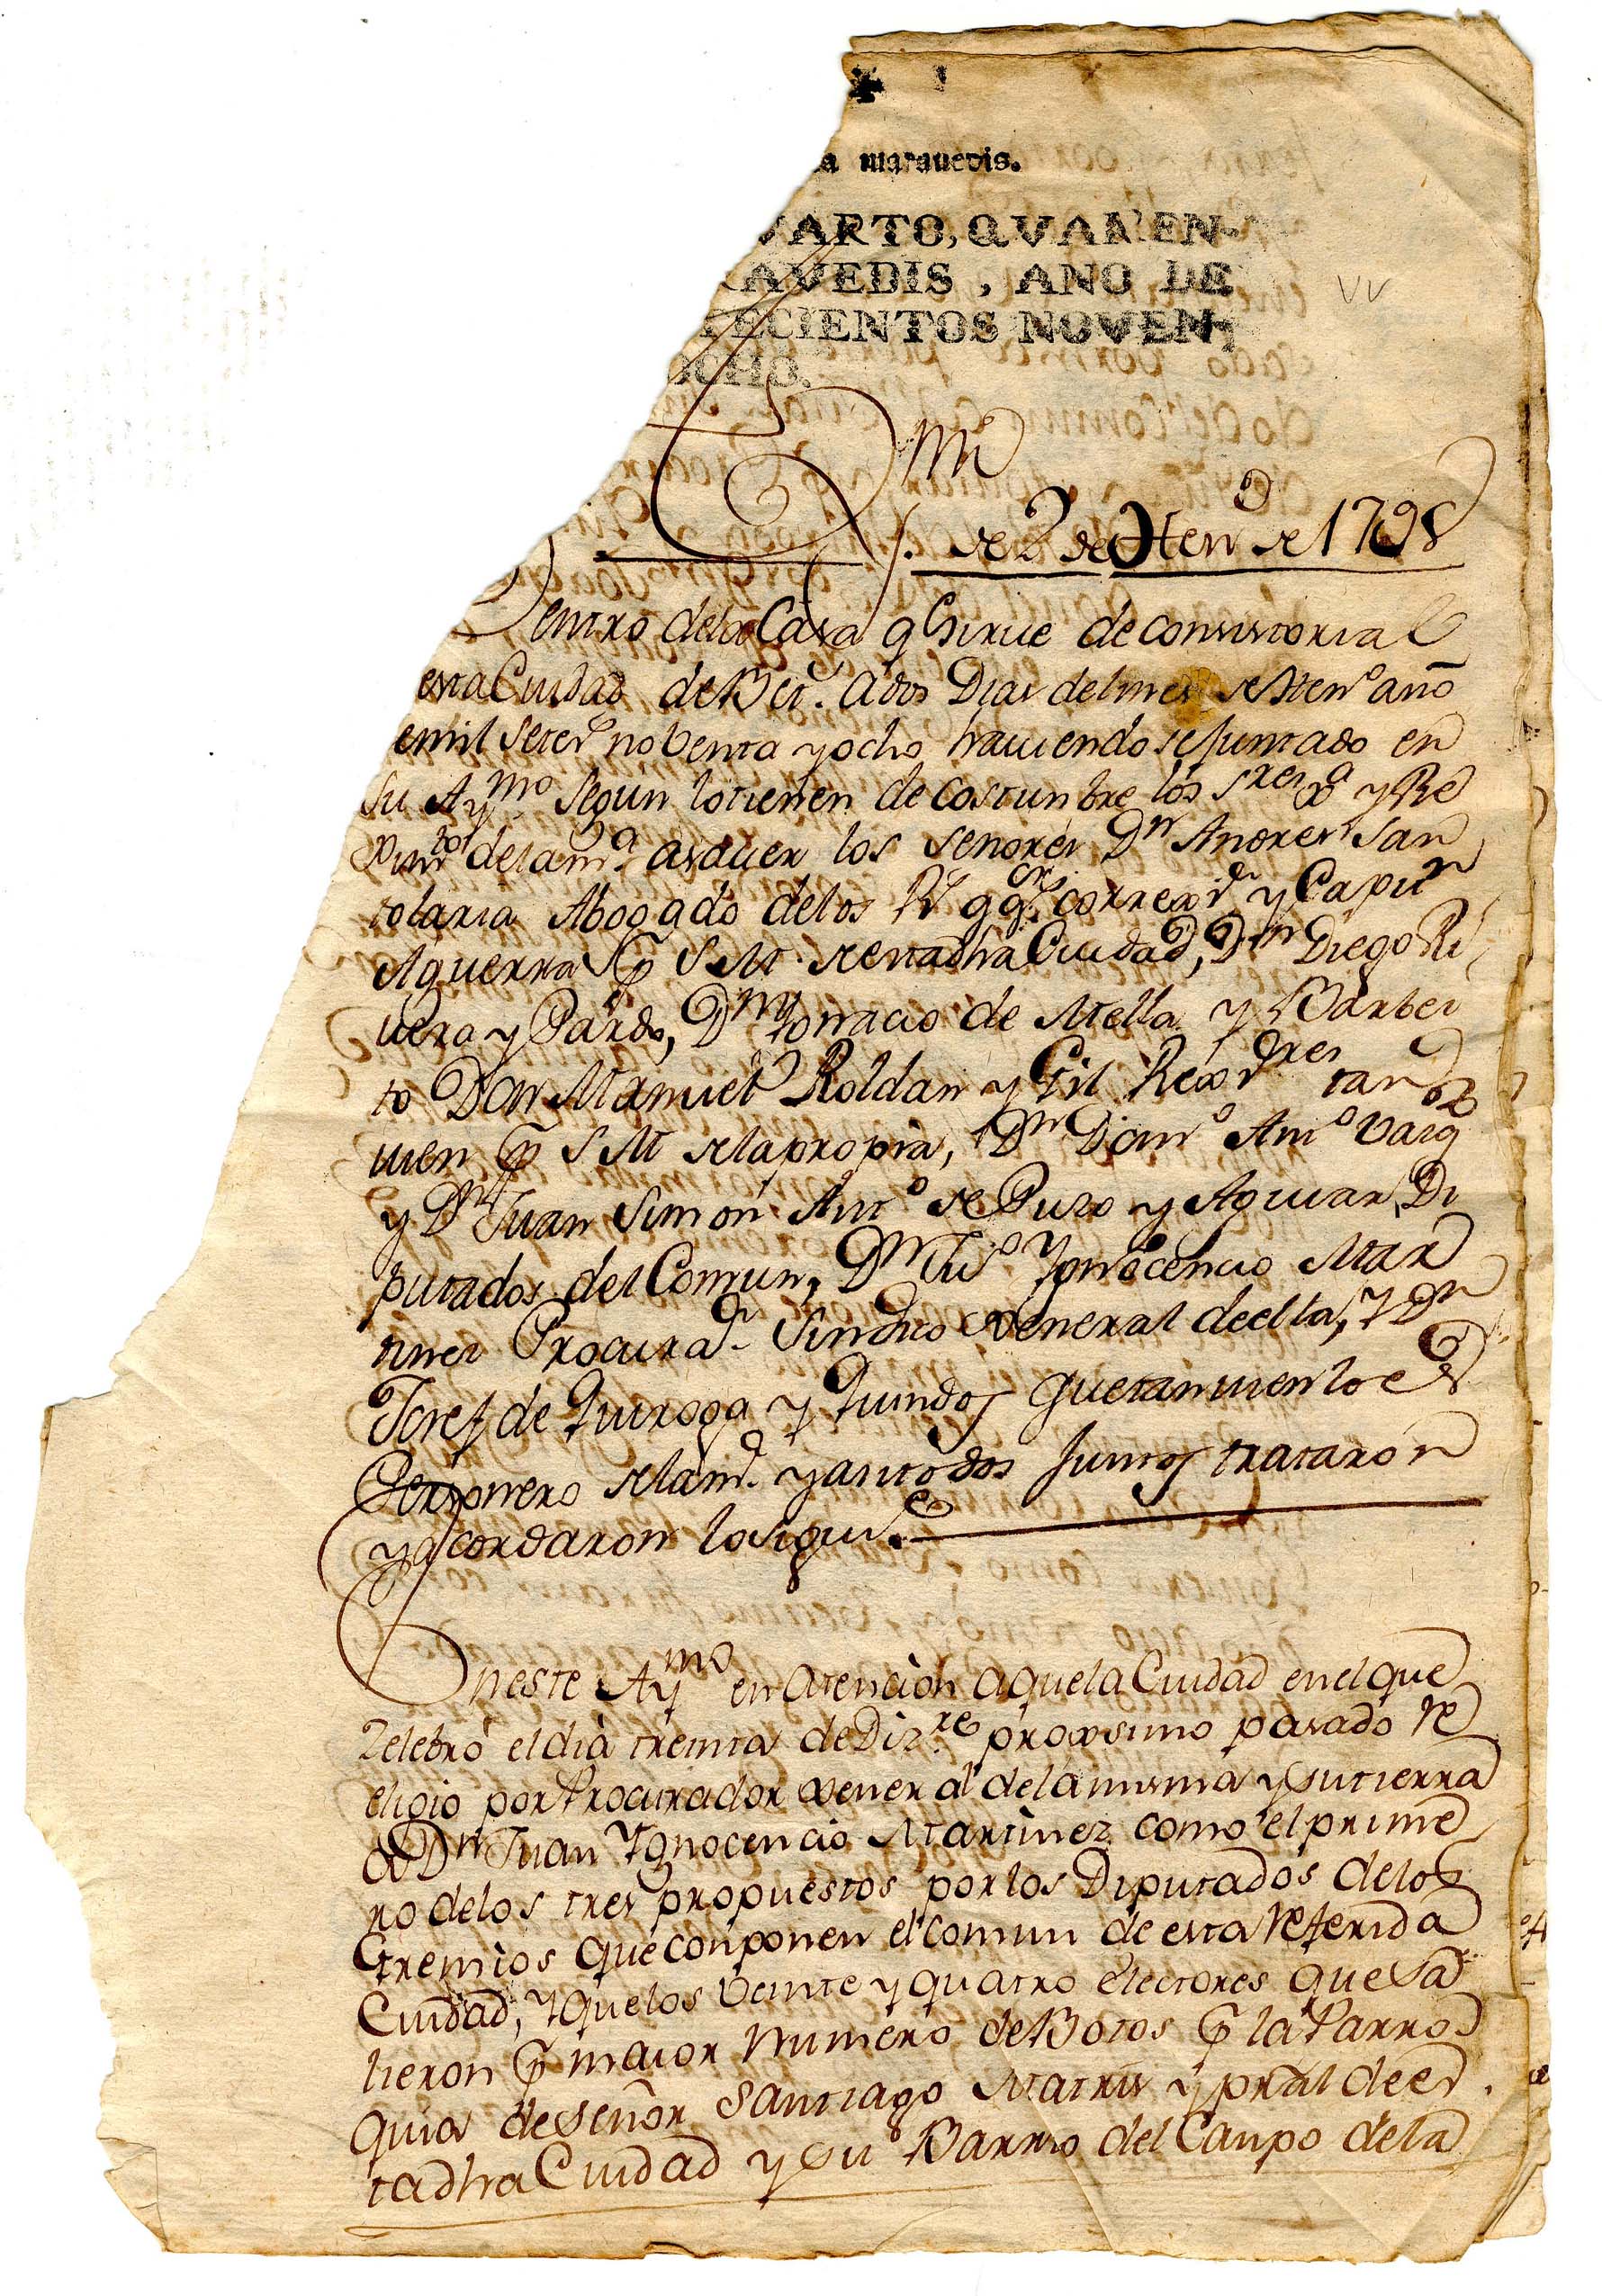 a marauedis.
VARTO, QVAREN-
RAVEDIS, ANO DE
TECIENTOS NOVEN-
OCHO.
de 2 de Hen.o de 1798
entro dela Casa q sirue de consistorial
esta Ciudad de Bet.s a dos Dias del mes de Hen.o año
emil setez.s nobenta y ocho hauiendose juntado en
su Aym.to segun lo tienen de costunbre los S.res y Re
xim.to dela m.a asauer los señores D.n Andres San
tolaria Abogado delos R.s q.q.s correx.r y Capit.n
Aguerra p S M. de esta dha Ciudad, D.n Diego Ri
uera y Pardo, D.n Ygnacio de Mella y Barbei
to Don Manuel Roldan y Gil Rexid.res tan
uien p S M de la propia, D.n Dom.o Ant.o Vazq.z
y D.n Juan Simon Ant.o de Puzo y Aguiar, Di
putados del Comun, D.n Ju.o Ygnocencio Mar
tinez Procura.r Sindico General de ella, y D.n
Josef de Quiroga y Quindos que tanuien lo es
Personero de la m.a y asi todos juntos trataron
y acordaron lo sigui.te
Eneste Aym.to en atencion a que la Ciudad en el que
Zelebró el dia treinta de Diz.re proxsimo pasado se
eligio por Procurador General dela misma y su tierra
a D.n Juan Ygnocencio Martinez como el prime
ro delos tres propuestos por los Diputados delos
Gremios que conponen el comun de esta referida
Ciudad, y que los veinte y quatro electores que sa
lieron p maior numero de Botos p la Parro
quia de Señor Santiago Matris y pral de es
ta dha Ciudad y su Barrio del Canpo dela